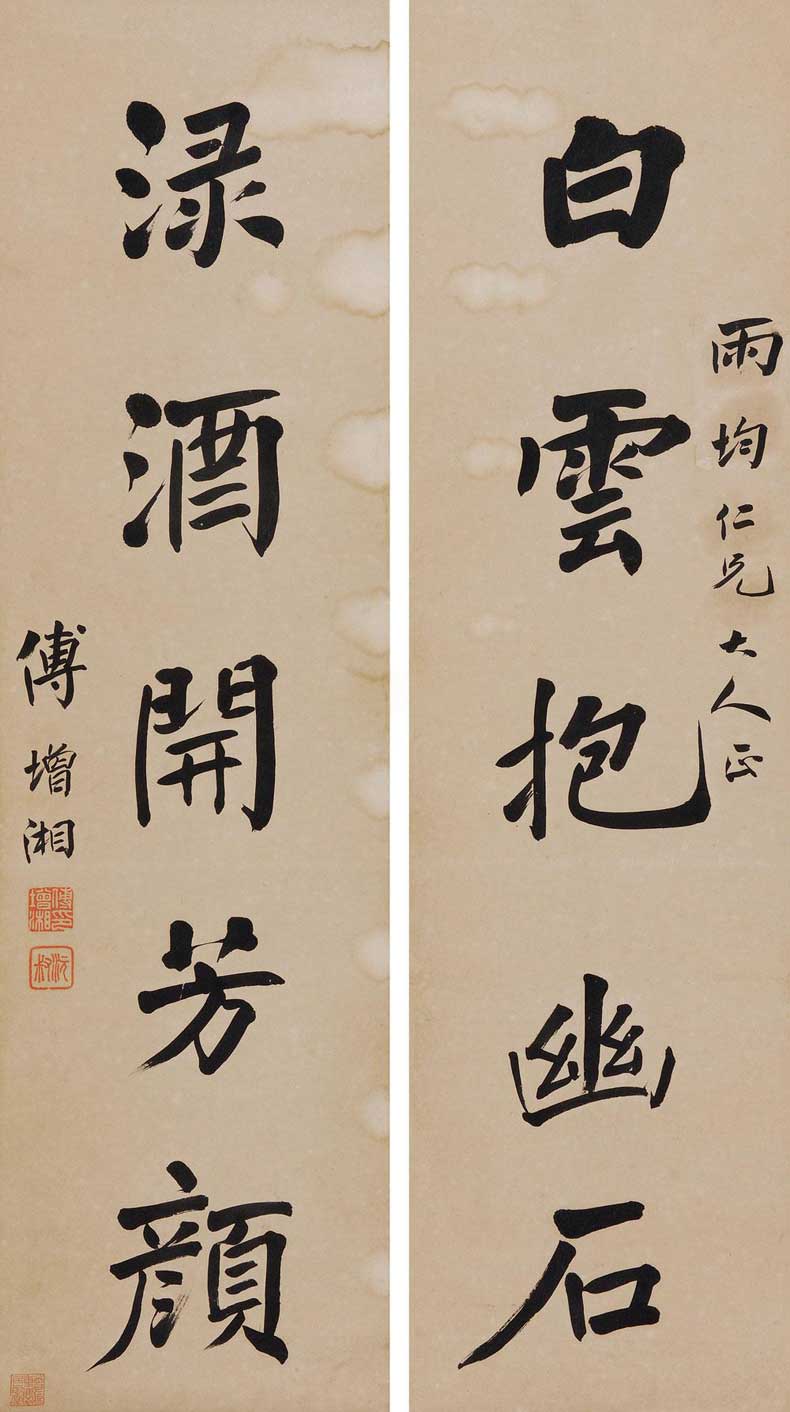 雨均仁兄大人正
白雲抱幽石
渌酒開芳顏
傅增湘
傅增湘印
沅叔